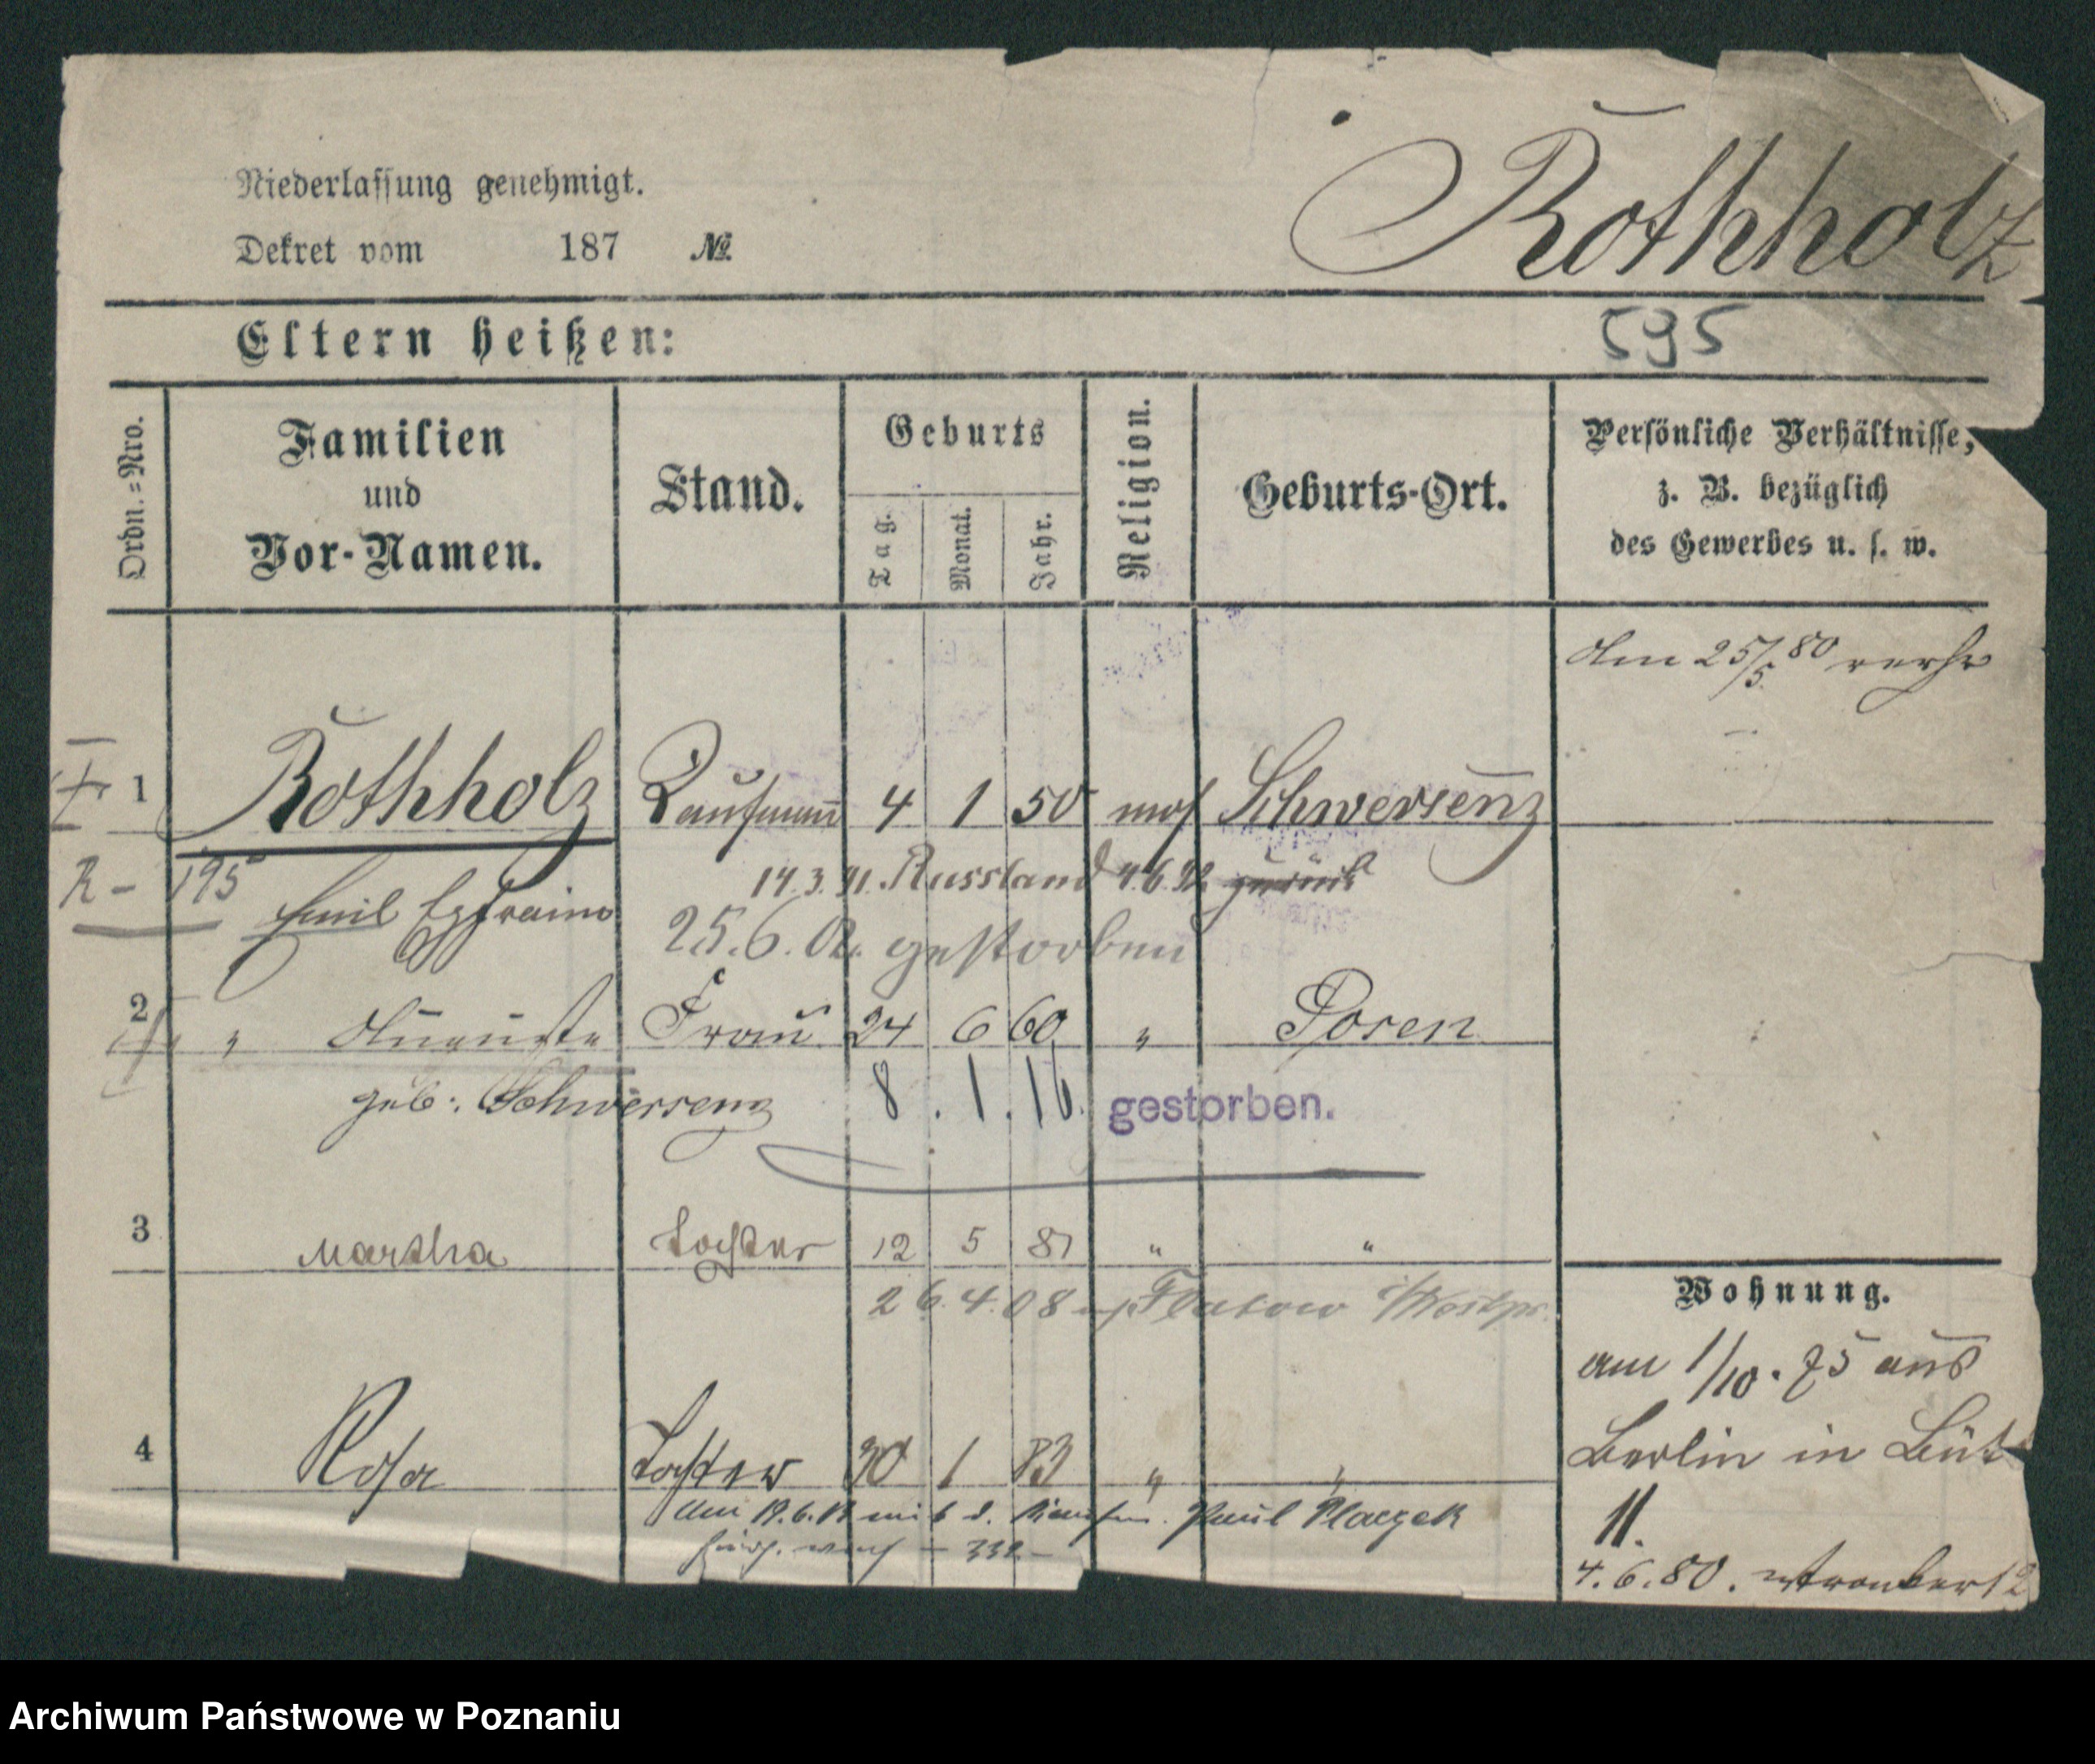 Niederlassung genehmigt.
Dekret vom 187 №.
Rothholz
Eltern heißen:
595
Ordn.=Nro.
Familien
und
Vor-Namen.
Stand.
Geburts
Tag.
Monat.
Jahr.
Religion.
Geburts-Ort.
Persönliche Verhältnisse,
z. B. bezüglich
des Gewerbes u. s. w.
Am 25/5 80 verhr
1 Rothholz Kaufmann 4 1 50 mos Schwersenz
R - 195
Emil Ephraim
14.3.91. Russland 4.6.92 zurück
25.6.02. gestorben
2 " Auguste Frau 24 6 60 " Posen
geb: Schwersenz 8. 1. 16. gestorben.
3 Martha Tochter 12 5 81 " "
26.4.08 Flatow Westpr.
4 Rosa Tochter 30 1 83 " "
am 19.6. mit d. Kaufm. Paul Placzek
Wohnung.
am 1/10. 75 aus
Berlin in Büt
11.
4.6.80. Wronker 12
Archiwum Państwowe w Poznaniu